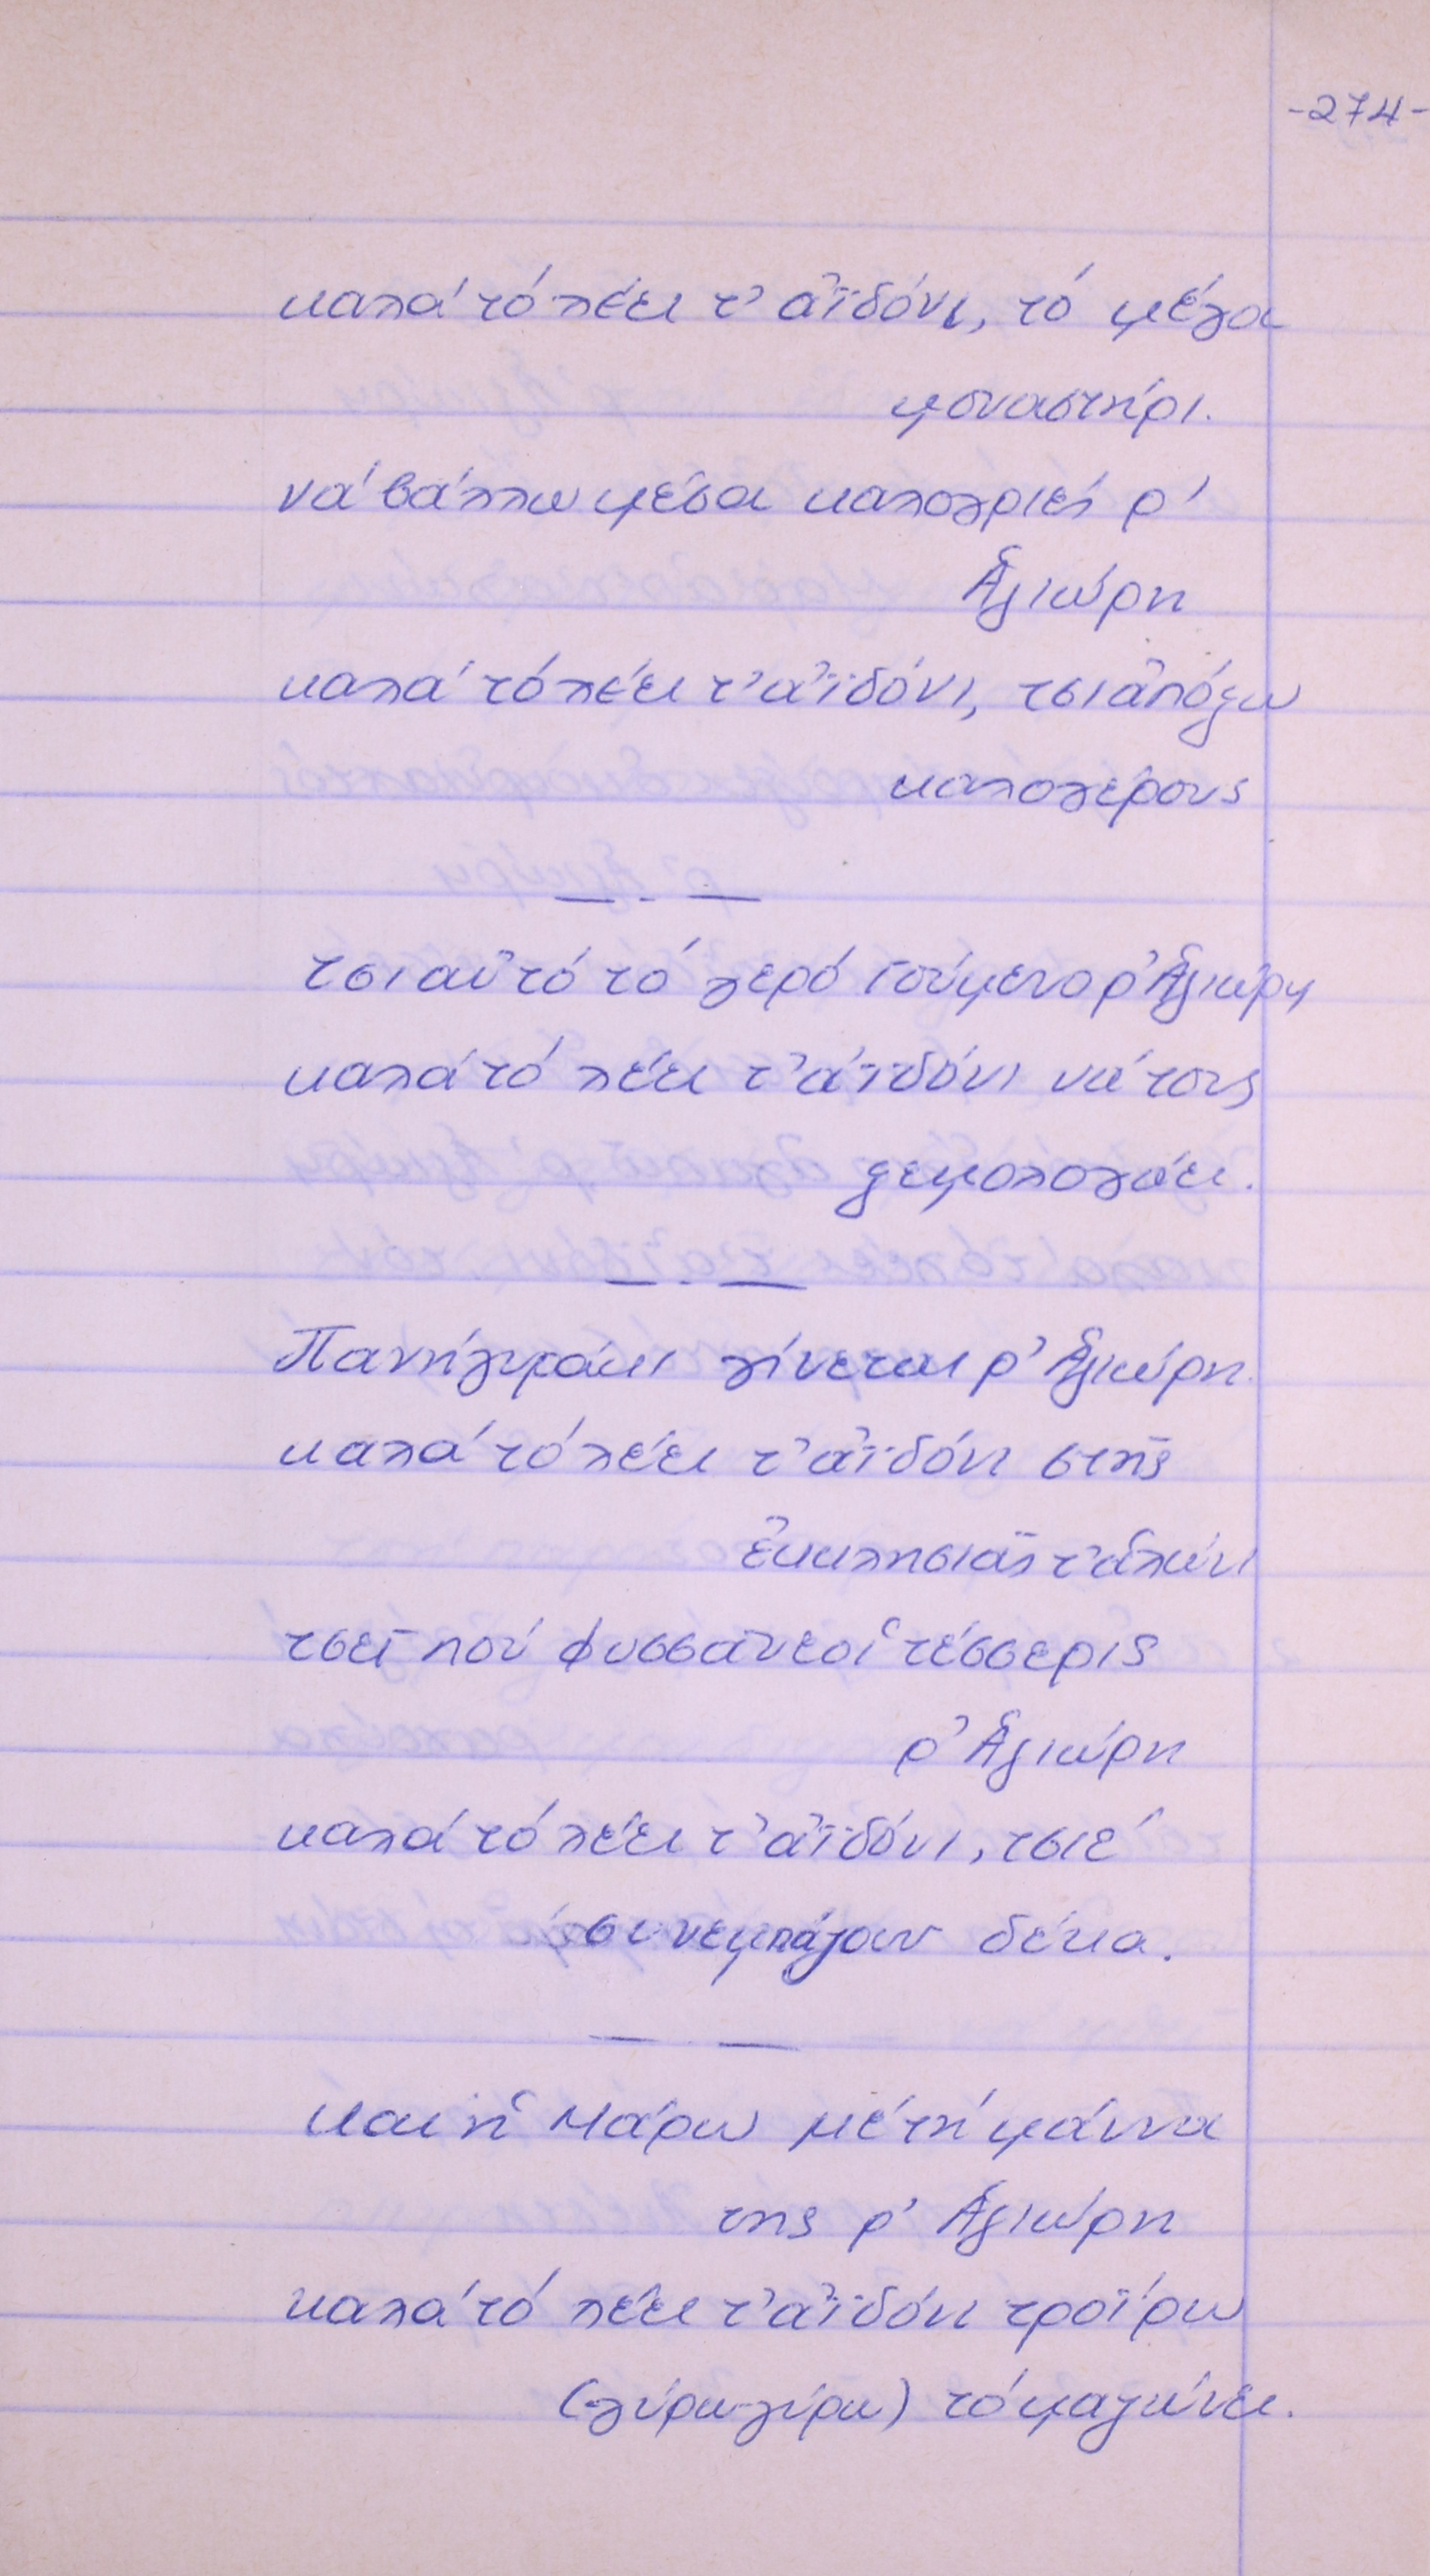 -274-
καλά τό λέει τ' ἀϊδόνι, τό μέγα
μοναστήρι.
νά βάλλω μέσα καλογριές ρ'
Ἁγιώρη
καλά τό λέει τ' ἀϊδόνι, τσι ἀπόξω
καλογέρους
— . —
τσι αὐτό τό γερό γούμενο ρ' Ἁγιώρη
καλά τό λέει τ' ἀϊδόνι νά τους
ξεμολογάει.
— . —
Πανήγυράκι γίνεται ρ' Ἁγιώρη.
καλά τό λέει τ' ἀϊδόνι στῆς
ἐκκλησιᾶς τ' ἁλώνι
τσεῖ πού φυσσᾶνε οἱ τέσσερις
ρ' Ἁγιώρη
καλά τό λέει τ' ἀϊδόνι, τσι ἑ
συνεμπάζουν δέκα.
— —
και ἡ Μάρω μέ τή μάννα
της ρ' Ἁγιώρη
καλά τό λέει τ' ἀϊδόνι τροΐρω
(-γύρω-γύρω) τό μαζώνει.